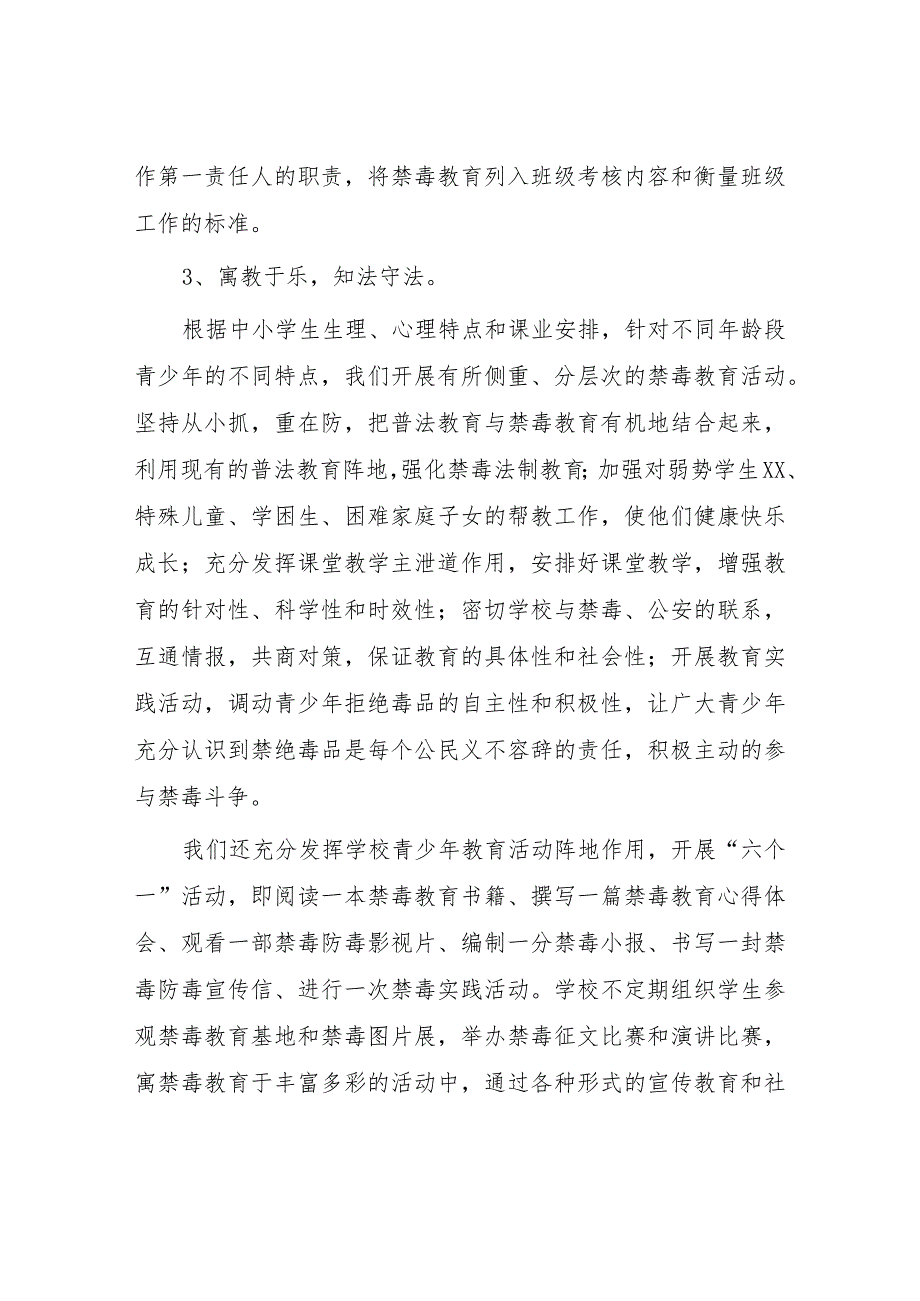 作第一责任人的职责，将禁毒教育列入班级考核内容和衡量班级
工作的标准。
3、寓教于乐，知法守法。
根据中小学生生理、心理特点和课业安排，针对不同年龄段
青少年的不同特点，我们开展有所侧重、分层次的禁毒教育活动。
坚持从小抓，重在防，把普法教育与禁毒教育有机地结合起来，
利用现有的普法教育阵地，强化禁毒法制教育；加强对弱势学生XX、
特殊儿童、学困生、困难家庭子女的帮教工作，使他们健康快乐
成长；充分发挥课堂教学主泄道作用，安排好课堂教学，增强教
育的针对性、科学性和时效性；密切学校与禁毒、公安的联系，
互通情报，共商对策，保证教育的具体性和社会性；开展教育实
践活动，调动青少年拒绝毒品的自主性和积极性，让广大青少年
充分认识到禁绝毒品是每个公民义不容辞的责任，积极主动的参
与禁毒斗争。
我们还充分发挥学校青少年教育活动阵地作用，开展“六个
一”活动，即阅读一本禁毒教育书籍、撰写一篇禁毒教育心得体
会、观看一部禁毒防毒影视片、编制一分禁毒小报、书写一封禁
毒防毒宣传信、进行一次禁毒实践活动。学校不定期组织学生参
观禁毒教育基地和禁毒图片展，举办禁毒征文比赛和演讲比赛，
寓禁毒教育于丰富多彩的活动中，通过各种形式的宣传教育和社